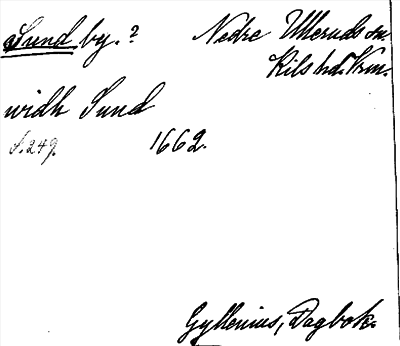 Sund by. ? Nedre Ulleruds sn
Kils hd. Vrm.
widh Sund
S. 249. 1662.
Gyllenius, Dagbok.